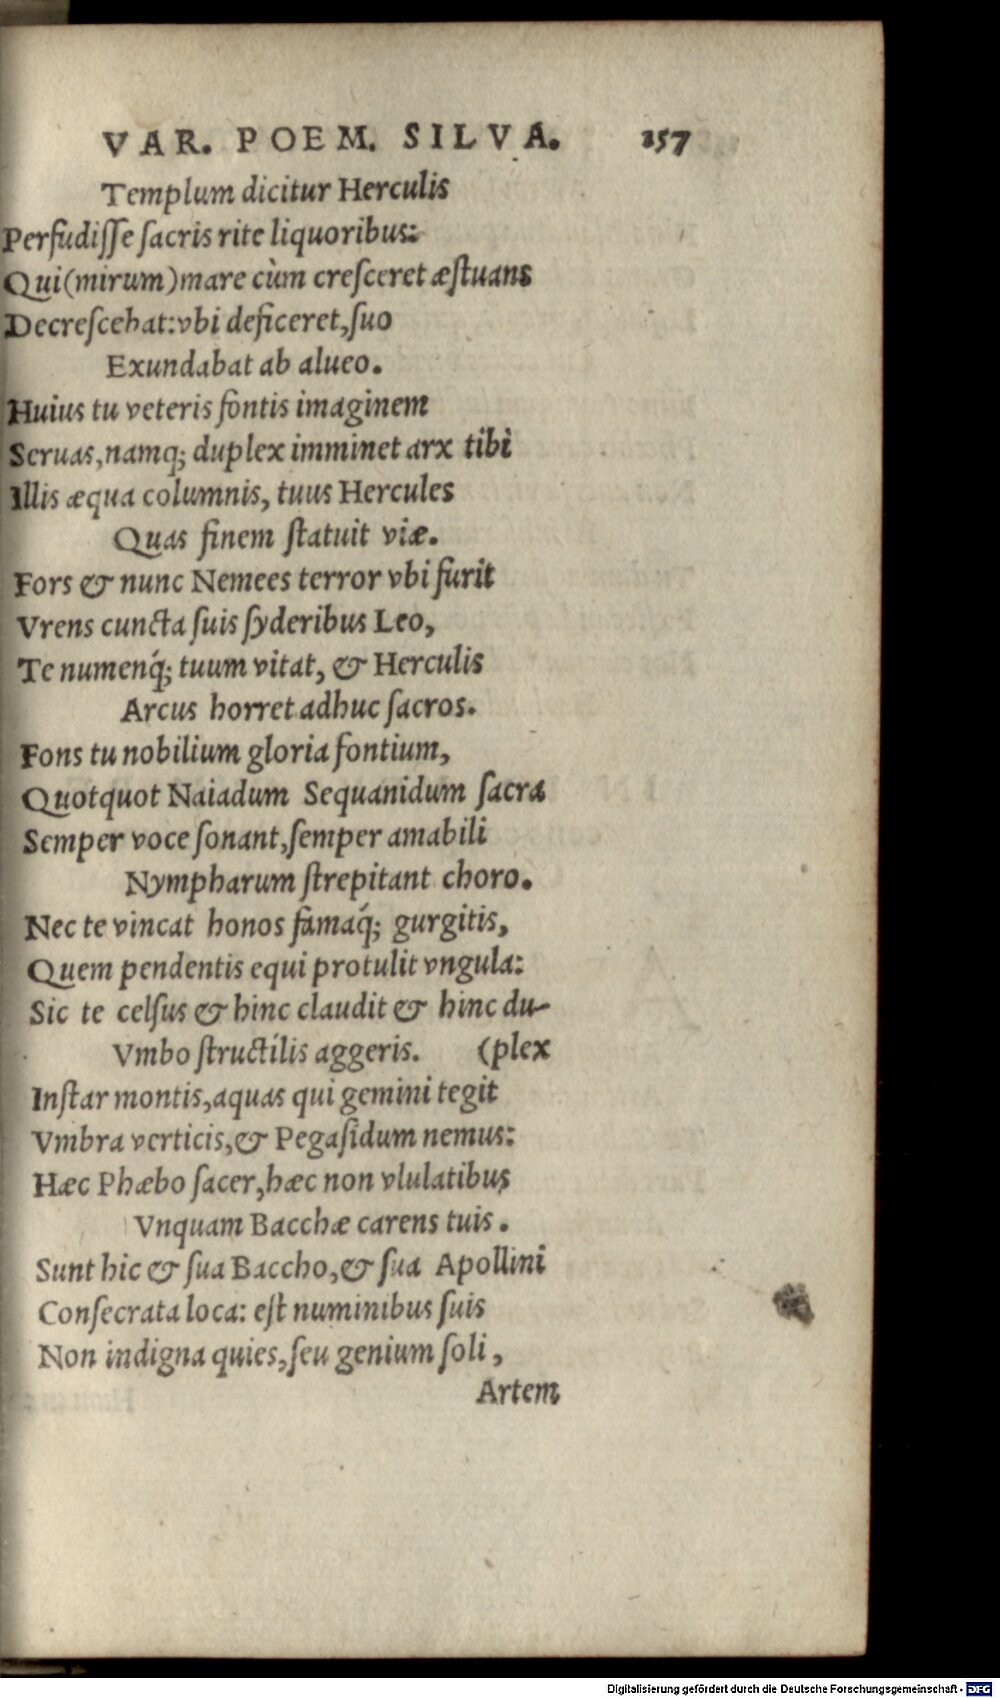 VAR. POEM. SILVA. 257
Templum dicitur Herculis
Perfudiſſe ſacris rite liquoribus:
Qui(mirum)mare cùm creſceret æſtuans
Decreſcebat:vbi deficeret,ſuo
Exundabat ab alueo.
Huius tu veteris fontis imaginem
Seruas,namq; duplex imminet arx tibi
Illis æqua columnis, tuus Hercules
Quas finem ſtatuit viæ.
Fors & nunc Nemees terror vbi furit
Vrens cuncta ſuis ſyderibus Leo,
Te numenq́; tuum vitat, & Herculis
Arcus horret adhuc ſacros.
Fons tu nobilium gloria fontium,
Quotquot Naiadum Sequanidum ſacra
Semper voce ſonant,ſemper amabili
Nympharum ſtrepitant choro.
Nec te vincat honos famaq́; gurgitis,
Quem pendentis equi protulit vngula:
Sic te celſus & hinc claudit & hinc du-
Vmbo ſtructilis aggeris. (plex
Inſtar montis,aquas qui gemini tegit
Vmbra verticis,& Pegaſidum nemus:
Hæc Phæbo ſacer,hæc non vlulatibus
Vnquam Bacchæ carens tuis.
Sunt hic & ſua Baccho,& ſua Apollini
Conſecrata loca: eſt numinibus ſuis
Non indigna quies,ſeu genium ſoli,
Artem
Digitalisierung gefördert durch die Deutsche Forschungsgemeinschaft - DFG